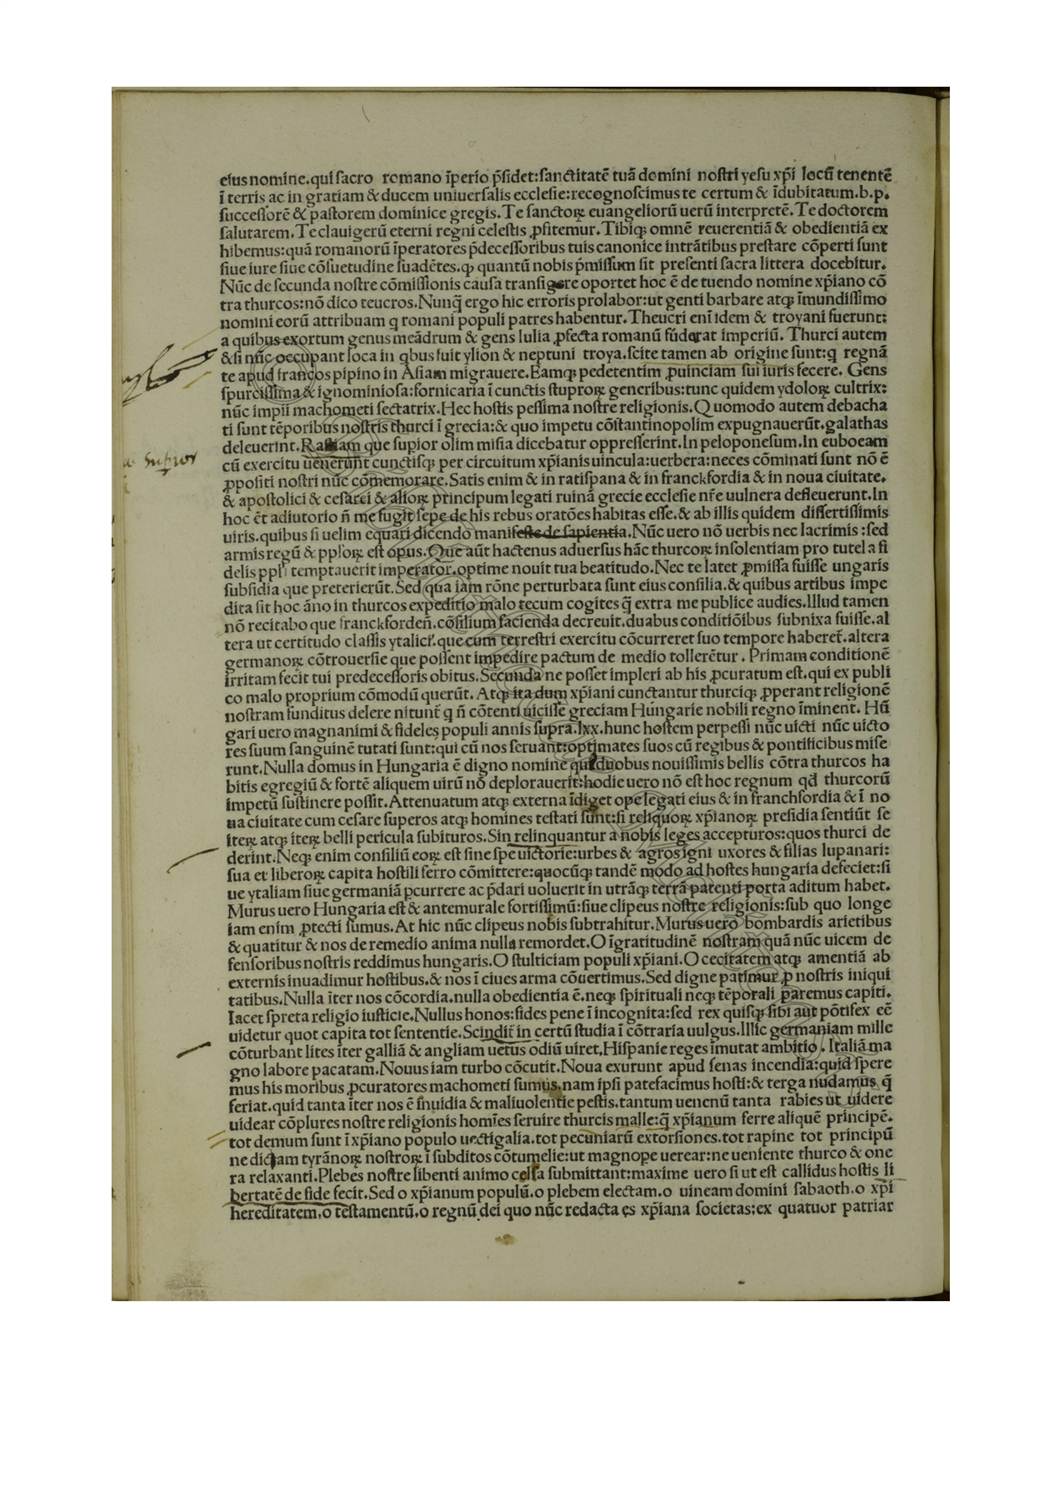 eius nomine. qui sacro romano īperio p̄sidet: sanctitatē tuā domini nostri yesu xp̄i locū tenentē
ī terris ac in gratiam & ducem uniuersalis ecclesie: recognoscimus te certum & īdubitatum. b. p.
successorē & pastorem dominice gregis. Te sanctoꝝ euangelioꝝ uerū interpretē. Te doctorem
salutarem. Te clauigerū eterni regni celestis ꝓfitemur. Tibiqꝫ omnē reuerentiā & obedientiā ex
hibemus: quā romanorū īperatores p̄decessoribus tuis canonice intrātibus prestare cōperti sunt
siue iure siue cōsuetudine suadētes. qꝫ quantū nobis p̄missum sit presenti sacra littera docebitur.
Nūc de secunda nostre cōmissionis causa transigere oportet hoc ē de tuendo nomine xp̄iano cō
tra thurcos: nō dico teucros. Nunq̄ ergo hic erroris prolabor: ut genti barbare atqꝫ īmundissimo
nomini eorū attribuam q romani populi patres habentur. Theucri enī idem & troyani fuerunt:
a quibus exortum genus meādrum & gens Iulia ꝓfecta romanū fūderat imperiū. Thurci autem
& si nūc occupant loca in qbus fuit ylion & neptuni troya. scite tamen ab origine sunt: q regnā
te apud francos pipino in Asiam migrauere. Eamqꝫ pedetentim ꝓuinciam sui iuris fecere. Gens
spurcissima & ignominiosa: fornicaria ī cunctis stuproꝝ generibus: tunc quidem ydoloꝝ cultrix:
nūc impii machometi sectatrix. Hec hostis pessima nostre religionis. Quomodo autem debacha
ti sunt tēporibus nostris thurci ī grecia: & quo impetu cōstantinopolim expugnauerūt. galathas
deleuerint. que supior olim misia dicebatur oppresserint. In peloponesum. In euboeam
cū exercitu uenerunt cunctisqꝫ per circuitum xp̄ianis uincula: uerbera: neces cōminati sunt nō ē
ꝓpositi nostri nūc cōmemorare. Satis enim & in ratispana & in franckfordia & in noua ciuitate.
& apostolici & cesarei & alioꝝ principum legati ruinā grecie ecclesie nr̄e uulnera defleuerunt. In
hoc ēt adiutorio n̄ me fugit sepe de his rebus oratōes habitas esse. & ab illis quidem dissertissimis
uiris. quibus si uelim equari dicendo manifeste de sapientia. Nūc uero nō uerbis nec lacrimis: sed
armis regū & pp̄loꝝ est opus. Que aūt hactenus aduersus hāc thurcoꝝ insolentiam pro tutela fi
delis ppl̄i temptauerit imperator. optime nouit tua beatitudo. Nec te latet ꝓmissa fuisse ungaris
subsidia que preterierūt. Sed qua iam rōne perturbata sunt eius consilia. & quibus artibus impe
dita sit hoc āno in thurcos expeditio malo tecum cogites q̄ extra me publice audies. Illud tamen
nō recitabo que franckfordeñ. cōsilium facienda decreuit. duabus conditiōibus subnixa fuisse. al
tera ut certitudo classis ytalici. que cum terrestri exercitu cōcurreret suo tempore haberet. altera
germanoꝝ cōtrouersie que possent impedire pactum de medio tollerētur. Primam conditionē
irritam fecit tui predecessoris obitus. Secunda ne posset impleri ab his ꝓcuratum est. qui ex publi
co malo proprium cōmodū querūt. Atqꝫ ita dum xp̄iani cunctantur thurciqꝫ ꝓperant religionē
nostram funditus delere nitunt̄ q n̄ cōtenti uicisse greciam Hungarie nobili regno īminent. Hū
gari uero magnanimi & fideles populi annis supra. lxx. hunc hostem perpessi nūc uicti nūc uicto
res suum sanguinē tutati sunt: qui cū nos seruant: optimates suos cū regibus & pontificibus mise
runt. Nulla domus in Hungaria ē digno nomine qui duobus nouissimis bellis cōtra thurcos ha
bitis egregiū & fortē aliquem uirū nō deplorauerit: hodie uero nō est hoc regnum qd thurcorū
impetū sustinere possit. Attenuatum atqꝫ externa īdiget ope legati eius & in franchfordia & ī no
ua ciuitate cum cesare superos atqꝫ homines testati sunt: si reliquoꝝ xp̄ianoꝝ presidia sentiūt se
iteꝝ atqꝫ iteꝝ belli pericula subituros. Sin relinquantur a nobis leges accepturos: quos thurci de
derint. Neqꝫ enim consiliū eoꝝ est sine spe uictorie: urbes & agros igni uxores & filias lupanari:
sua et liberoꝝ capita hostili ferro cōmittere: quocūqꝫ tandē modo ad hostes hungaria defeciet: si
ue ytaliam siue germaniā ꝑcurrere ac p̄dari uoluerit in utrāqꝫ terrā patenti porta aditum habet.
Murus uero Hungaria est & antemurale fortissimū: siue clipeus nostre religionis: sub quo longe
iam enim ꝓtecti sumus. At hic nūc clipeus nobis subtrahitur. Murus uero bombardis arietibus
& quatitur & nos de remedio anima nulla remordet. O īgratitudinē nostram quā nūc uicem de
fensoribus nostris reddimus hungaris. O stulticiam populi xp̄iani. O cecitatem atqꝫ amentiā ab
externis inuadimur hostibus. & nos ī ciues arma cōuertimus. Sed digne patimur ꝓ nostris iniqui
tatibus. Nulla īter nos cōcordia. nulla obedientia ē. neqꝫ spirituali neqꝫ tēporali paremus capiti.
Iacet spreta religio iusticie. Nullus honos: fides pene ī incognita: sed rex quisqꝫ sibi aut pōtifex eē
uidetur quot capita tot sententie. Scindit̄ in certū studia ī cōtraria uulgus. Illic germaniam mille
cōturbant lites īter galliā & angliam uetus odiū uiret. Hispanie reges īmutat ambitio. Italiā ma
gno labore pacatam. Nouus iam turbo cōcutit. Noua exurunt apud senas incendia: quid spere
mus his moribus ꝓcuratores machometi sumus. nam ipsi patefacimus hosti: & terga nudamus q̄
feriat. quid tanta īter nos ē īnuidia & maliuolentie pestis. tantum uenenū tanta rabies ut uidere
uidear cōplures nostre religionis homīes seruire thurcis malle: q̄ xp̄ianum ferre aliquē principē.
tot demum sunt ī xp̄iano populo uectigalia. tot pecuniarū extorsiones. tot rapine tot principū
ne dicam tyrānoꝝ nostroꝝ ī subditos cōtumelie: ut magnope uerear: ne ueniente thurco & one
ra relaxanti. Plebes nostre libenti animo colla submittant: maxime uero si ut est callidus hostis li
bertatē de fide fecit. Sed o xp̄ianum populū. o plebem electam. o uineam domini sabaoth. o xp̄i
hereditatem. o testamentū. o regnū dei quo nūc redacta es xp̄iana societas: ex quatuor patriar